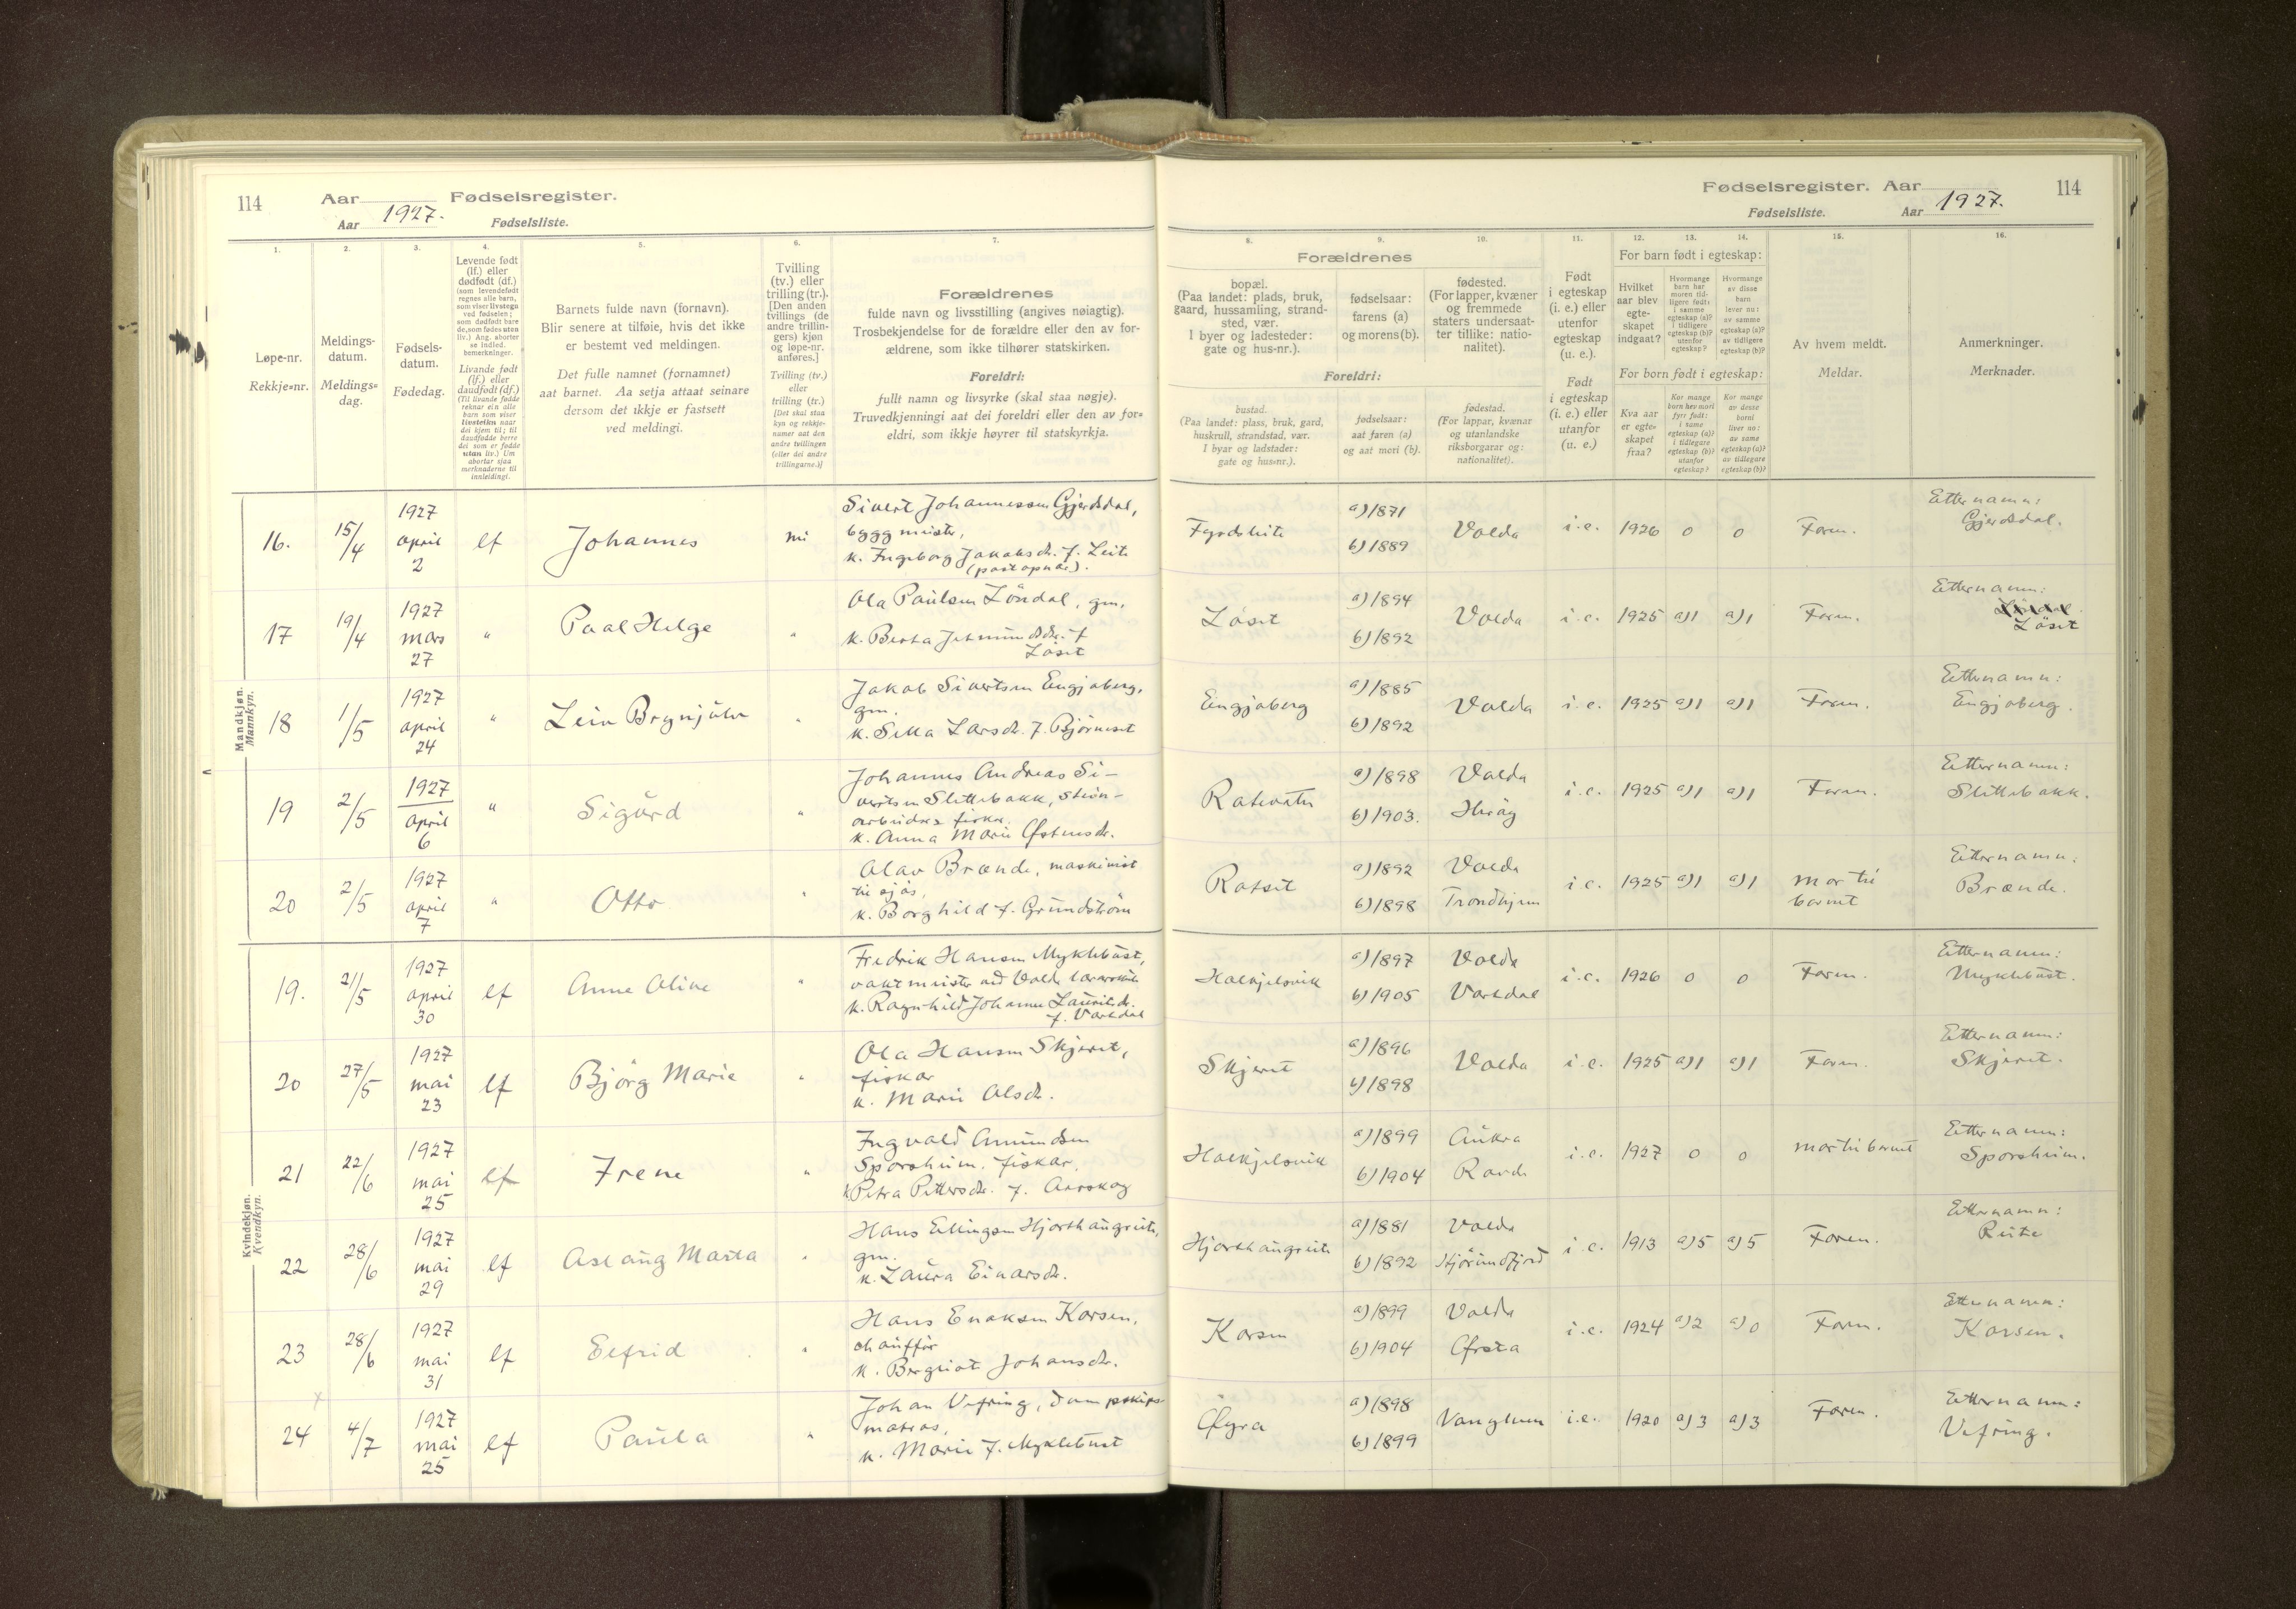 114 Aar 1927. Fødselsregister.
Aar Fødselsliste.
Fødselsregister. Aar 1927. 114
Fødselsliste. Aar
1. 2. 3. 4. 5. 6. 7.
Løpe-nr.
Rekkje-nr.
Meldings-
datum.
Meldings-
dag.
Fødsels-
datum.
Fødedag.
Levende født
(lf.) eller
dødfødt (df.)
(som levendefødt
regnes alle barn,
som viser livstegn
ved fødselen;
som dødfødt bare
de, som fødes uten
liv.) Ang. aborter
se indled.
bemerkninger.
Livande født
(lf.) eller
daudfødt (df.)
(Til livande fødde
reknar ein alle
barn som viser
livsteikn naar
dei kjem til; til
daudfødde berre
dei som er fødde
utan liv.) Um
abortar sjaa
merknaderne til
innleidingi.
Barnets fulde navn (fornavn).
Blir senere at tilføie, hvis det ikke
er bestemt ved meldingen.
Det fulle namnet (fornamnet)
aat barnet. Aa setja attaat seinare
dersom det ikkje er fastsett
ved meldingi.
Tvilling
(tv.) eller
trilling (tr.).
[Den anden
tvillings (de
andre trillin-
gers) kjøn
og løpe-nr.
anføres.]
Tvilling (tv.)
eller
trilling (tr.)
[Det skal staa
kyn og rekkje-
numer aat den
andre tvillingen
(eller dei andre
trillingarne.)]
Forældrenes
fulde navn og livsstilling (angives nøiagtig).
Trosbekjendelse for de forældre eller den av for-
ældrene, som ikke tilhører statskirken.
Foreldri:
fullt namn og livsyrke (skal staa nøgje).
Truvedkjenningi aat dei foreldri eller den av for-
eldri, som ikkje høyrer til statskyrkja.
8. 9. 10. 11. 12. 13. 14. 15. 16.
Forældrenes
bopæl.
(Paa landet: plads, bruk,
gaard, hussamling, strand-
sted, vær.
I byer og ladesteder:
gate og hus-nr.).
fødselsaar:
farens (a)
og morens (b).
fødested.
(For lapper, kvæner
og fremmede
staters undersaat-
ter tillike: natio-
nalitet).
Foreldri:
bustad.
(Paa landet: plass, bruk, gard,
huskrull, strandstad, vær.
I byar og ladstader:
gate og hus-nr.).
fødselsaar:
aat faren (a)
og aat mori (b).
fødestad.
(For lappar, kvænar
og utanlandske
riksborgarar og:
nationalitet).
Født
i egteskap
(i. e.) eller
utenfor
egteskap
(u. e.).
Født
i egteskap
(i. e.) eller
utanfor
(u. e.)
For barn født i egteskap:
Hvilket
aar blev
egte-
skapet
indgaat?
Hvormange
barn har
moren tid-
ligere født:
i samme
egteskap (a)?
i tidligere
egteskap (b)?
utenfor
egteskap?
Hvormange
av disse
barn
lever nu:
av samme
egteskap (a)?
av tidligere
egteskap (b)?
For born født i egteskap:
Kva aar
er egte-
skapet
fraa?
Kor mange
born hev mori
fyrr født:
i same
egteskap (a)?
i tidlegare
egteskap (b)?
utanfor
egteskap?
Kor mange
av desse
borni
liver no:
av same
egteskap (a)?
av tidlegare
egteskap (b)?
Av hvem meldt.
Meldar.
Anmerkninger.
Merknader.
Mandkjøn.
Mannkyn.
16. 15/4 1927 april 2 lf Johannes nei
Sivert Johannessen Gjerdsdal,
byggmeister,
k. Ingeborg Jakobsdr. f. Leite
(postopnar).
a) 1871
b) 1889 Volda i.e. 1926 0 0 Faren. Etternamn:
Gjerdsdal.
17 19/4 1927 mars 27 " Paal Helge "
Ola Paulsen Löndal, gm.
k. Berta Jetmundsdr. f.
Löset
Löset a) 1894
b) 1892 Volda i.e. 1925 a) 1 a) 1 Faren. Etternamn:
Löset
18 1/5 1927 april 24 " Leiv Brynjulv "
Jakob Sivertsen Engjaberg,
gm.
k. Sella Larsdr. f. Björneset
Engjaberg a) 1885
b) 1892 Volda i.e. 1925 a) 1 a) 1 Faren. Etternamn:
Engjaberg.
19 2/5 1927 april 6 " Sigurd "
Johannes Andreas Si-
vertsen Slettebakk, stein-
arbeidar & fiskar.
k. Anna Marie Østensdr.
Rotevatn a) 1898 Volda
b) 1903. i.e. 1925 a) 1 a) 1 Faren. Etternamn:
Slettebakk.
20 2/5 1927 april 7 " Otto "
Olav Brænde, maskinist
til sjös,
k. Borghild f. Grundström
Rotset a) 1892 Volda
b) 1898 Trondhjem i.e. 1925 a) 1 a) 1 mor til
barnet Etternamn:
Brænde.
Kvindekjøn.
Kvendkyn.
19. 21/5 1927 april 30 lf Anne Oline "
Fredrik Hansen Myklebust,
vaktmeister ved Volda lærarskule
k. Ragnhild Johanne Lauritsdr.
f. Vartdal
Halkjelsvik a) 1897 Volda
b) 1905 Vartdal i.e. 1926 0 0 Faren. Etternamn:
Myklebust.
20 27/5 1927 mai 23 lf Björg Marie "
Ola Hansen Skjeret,
fiskar
k. Marie Olsdr.
Skjeret a) 1896
b) 1898 Volda i.e. 1925 a) 1 a) 1 Faren. Etternamn:
Skjeret.
21 22/6 1927 mai 25 lf Irene "
Ingvald Amundsen
Sporsheim. fiskar.
k Petra Pettersdr. f. Aarskog
Halkjelsvik a) 1899 Aukra
b) 1904 i.e. 1927 0 0 mor til barnet Etternamn:
Sporsheim.
22 28/6 1927 mai 29 lf Aslaug Marta "
Hans Ellingsen Hjorthaugreite,
gm.
k. Laura Einarsdr.
Hjorthaugreite a) 1881 Volda
b) 1892 Hjörundfjord i.e. 1913 a) 5 a) 5 Faren. Etternamn:
Reite
23 28/6 1927 mai 31 lf Eldrid "
Hans Enoksen Korsen,
chauffør
k. Bergliot Johansdr.
Korsen a) 1899 Volda
b) 1904 Ørsta i.e. 1924 a) 2 a) 0 Faren. Etternamn:
Korsen.
x
24 4/7 1927 mai 25 lf Paula "
Johan Vefring, dampskips-
matros,
k. Marie f. Myklebust
Øyra a) 1898
b) 1899 i.e. 1920 a) 3 a) 3 Faren. Etternamn:
Vefring.